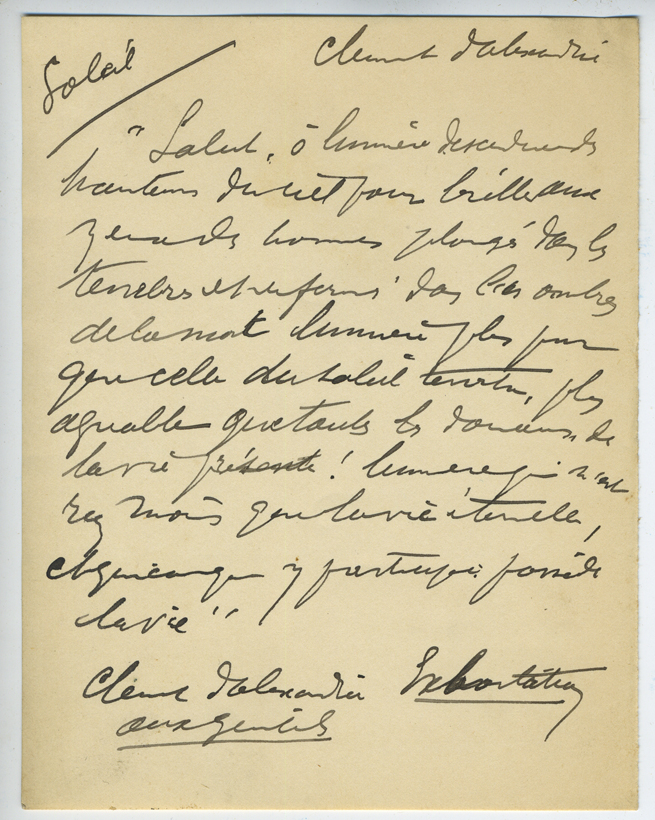 Soleil
Clement d'Alexandrie
"Salut, ô lumière descendue des
hauteurs du ciel pour briller aux
yeux des hommes plongés dans les
tenebres et renfermés dans les ombres
de la mort lumière plus pure
que celle du soleil terrestre, plus
agreable que toutes les douceurs de
la vie présente! lumiere qui n'est
rien moins que la vie éternelle,
et quiconque y participe possède
la vie"
Clement d'Alexandrie Exhortation
aux gentils